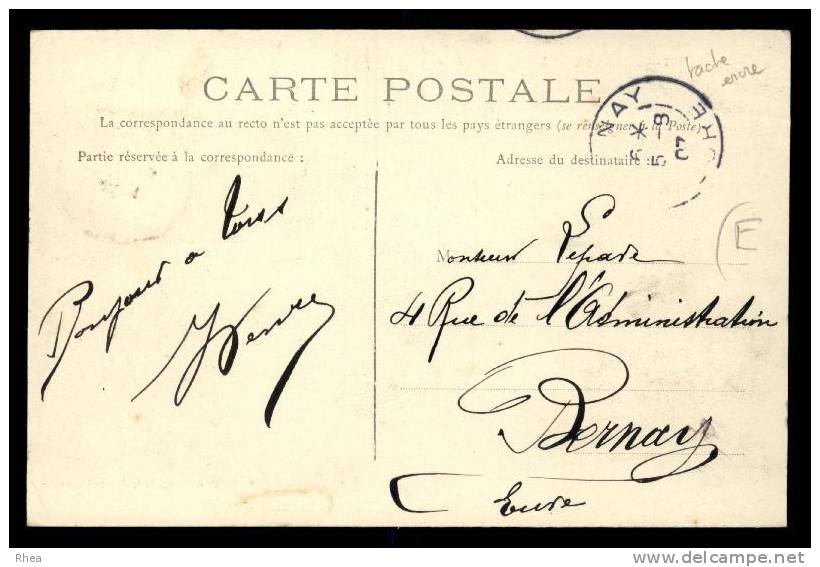 CARTE POSTALE
La correspondance au recto n'est pas acceptée par tous les pays étrangers (se renseigner à la Poste)
Partie réservée à la correspondance :
Adresse du destinataire :
NAY
5 -8
07
tache
encre
E
Bonjour a tous
Henri
Monsieur Lepare
4 Rue de l'Administration
Bernay
Eure
Rhea
www.delcampe.net